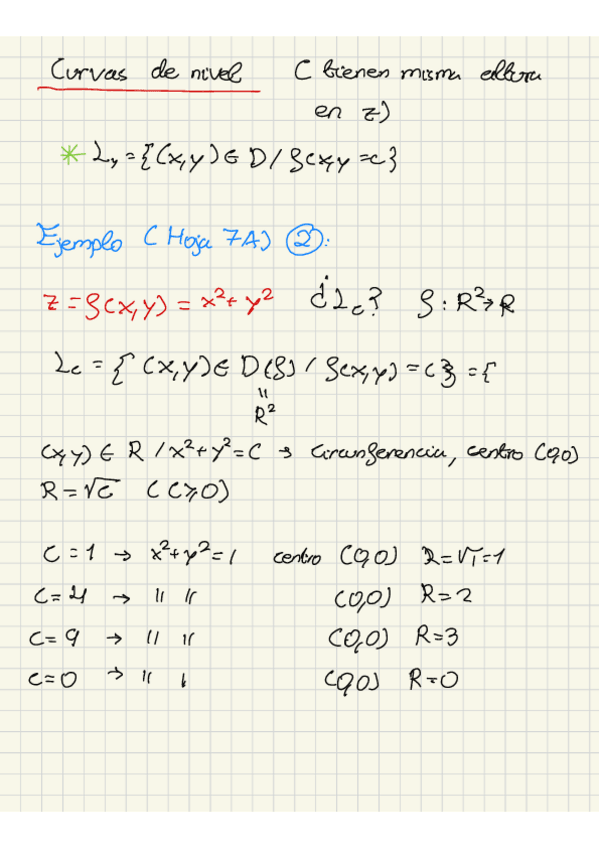 Curvas de nivel ( tienen misma altura
en z)
* Ly = {(x,y) ∈ D / f(x,y = c}
Ejemplo ( Hoja 7A) ②:
z = f(x,y) = x² + y² ¿Lc? f : R² → R
Lc = { (x,y) ∈ D(f) / f(x,y) = c } = {
"
R²
(x,y) ∈ R / x² + y² = C → Circunferencia, centro (0,0)
R = √C ( C ≥ 0)
C = 1 → x² + y² = 1 centro (0,0) R = √1 = 1
C = 4 → " " (0,0) R = 2
C = 9 → " " (0,0) R = 3
C = 0 → " " (0,0) R = 0